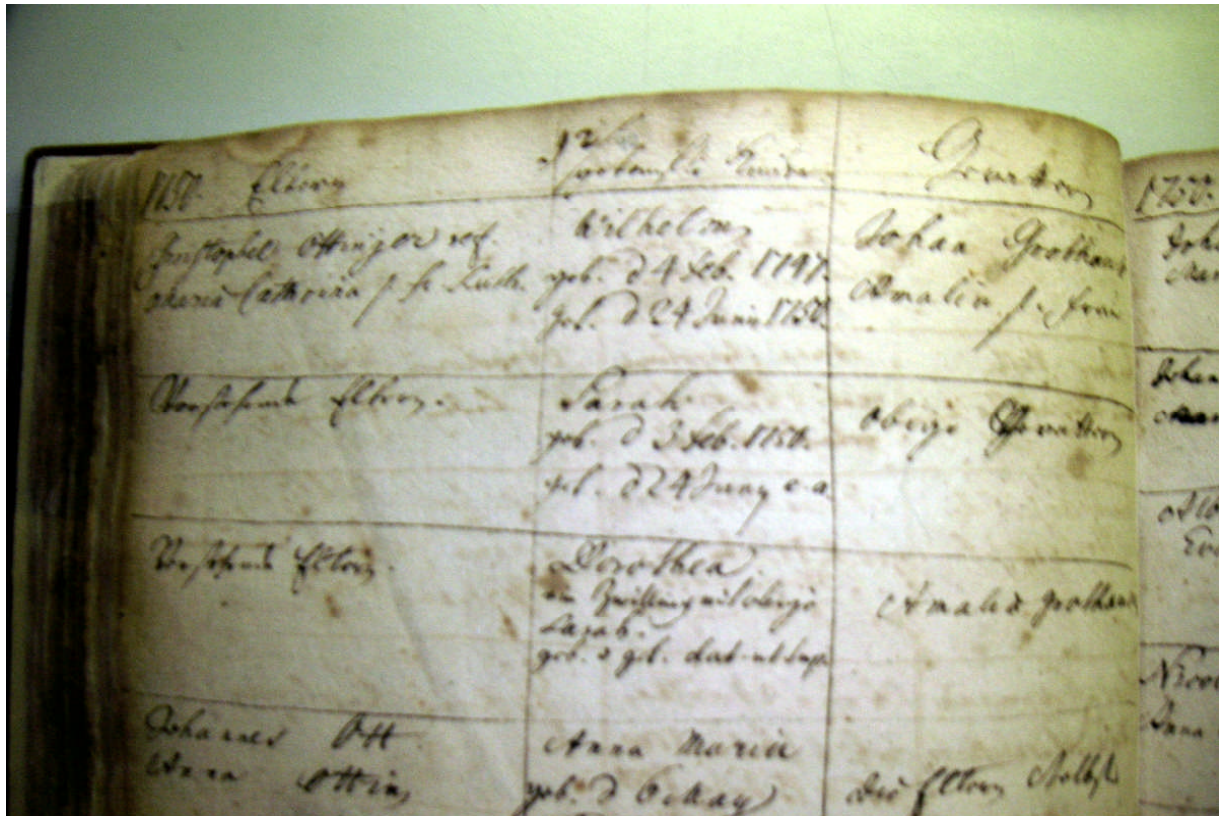 1750. Eltern
getaufte Kinder
Gevattern
Christophel Ottinger ref.
Maria Catharina s. fr. Luth.
Wilhelm,
geb. d 4 Feb. 1747.
get. d 24 Junii 1750.
Johan Grothaus
Amalia s. frau
Vorstehende Eltern.
Sarah
geb. d 3 Feb. 1750.
get. d 24 Juny e.a.
obige Gevattern
Vorstehende Eltern.
Dorothea.
ein Zwilling mit obiger
Sarah.
geb. & get. dat. ut sup.
Amalia Grothaus
Johannes Ott
Anna Ottin,
Anna Maria
geb. d 6 May
die Eltern selbst
1750.